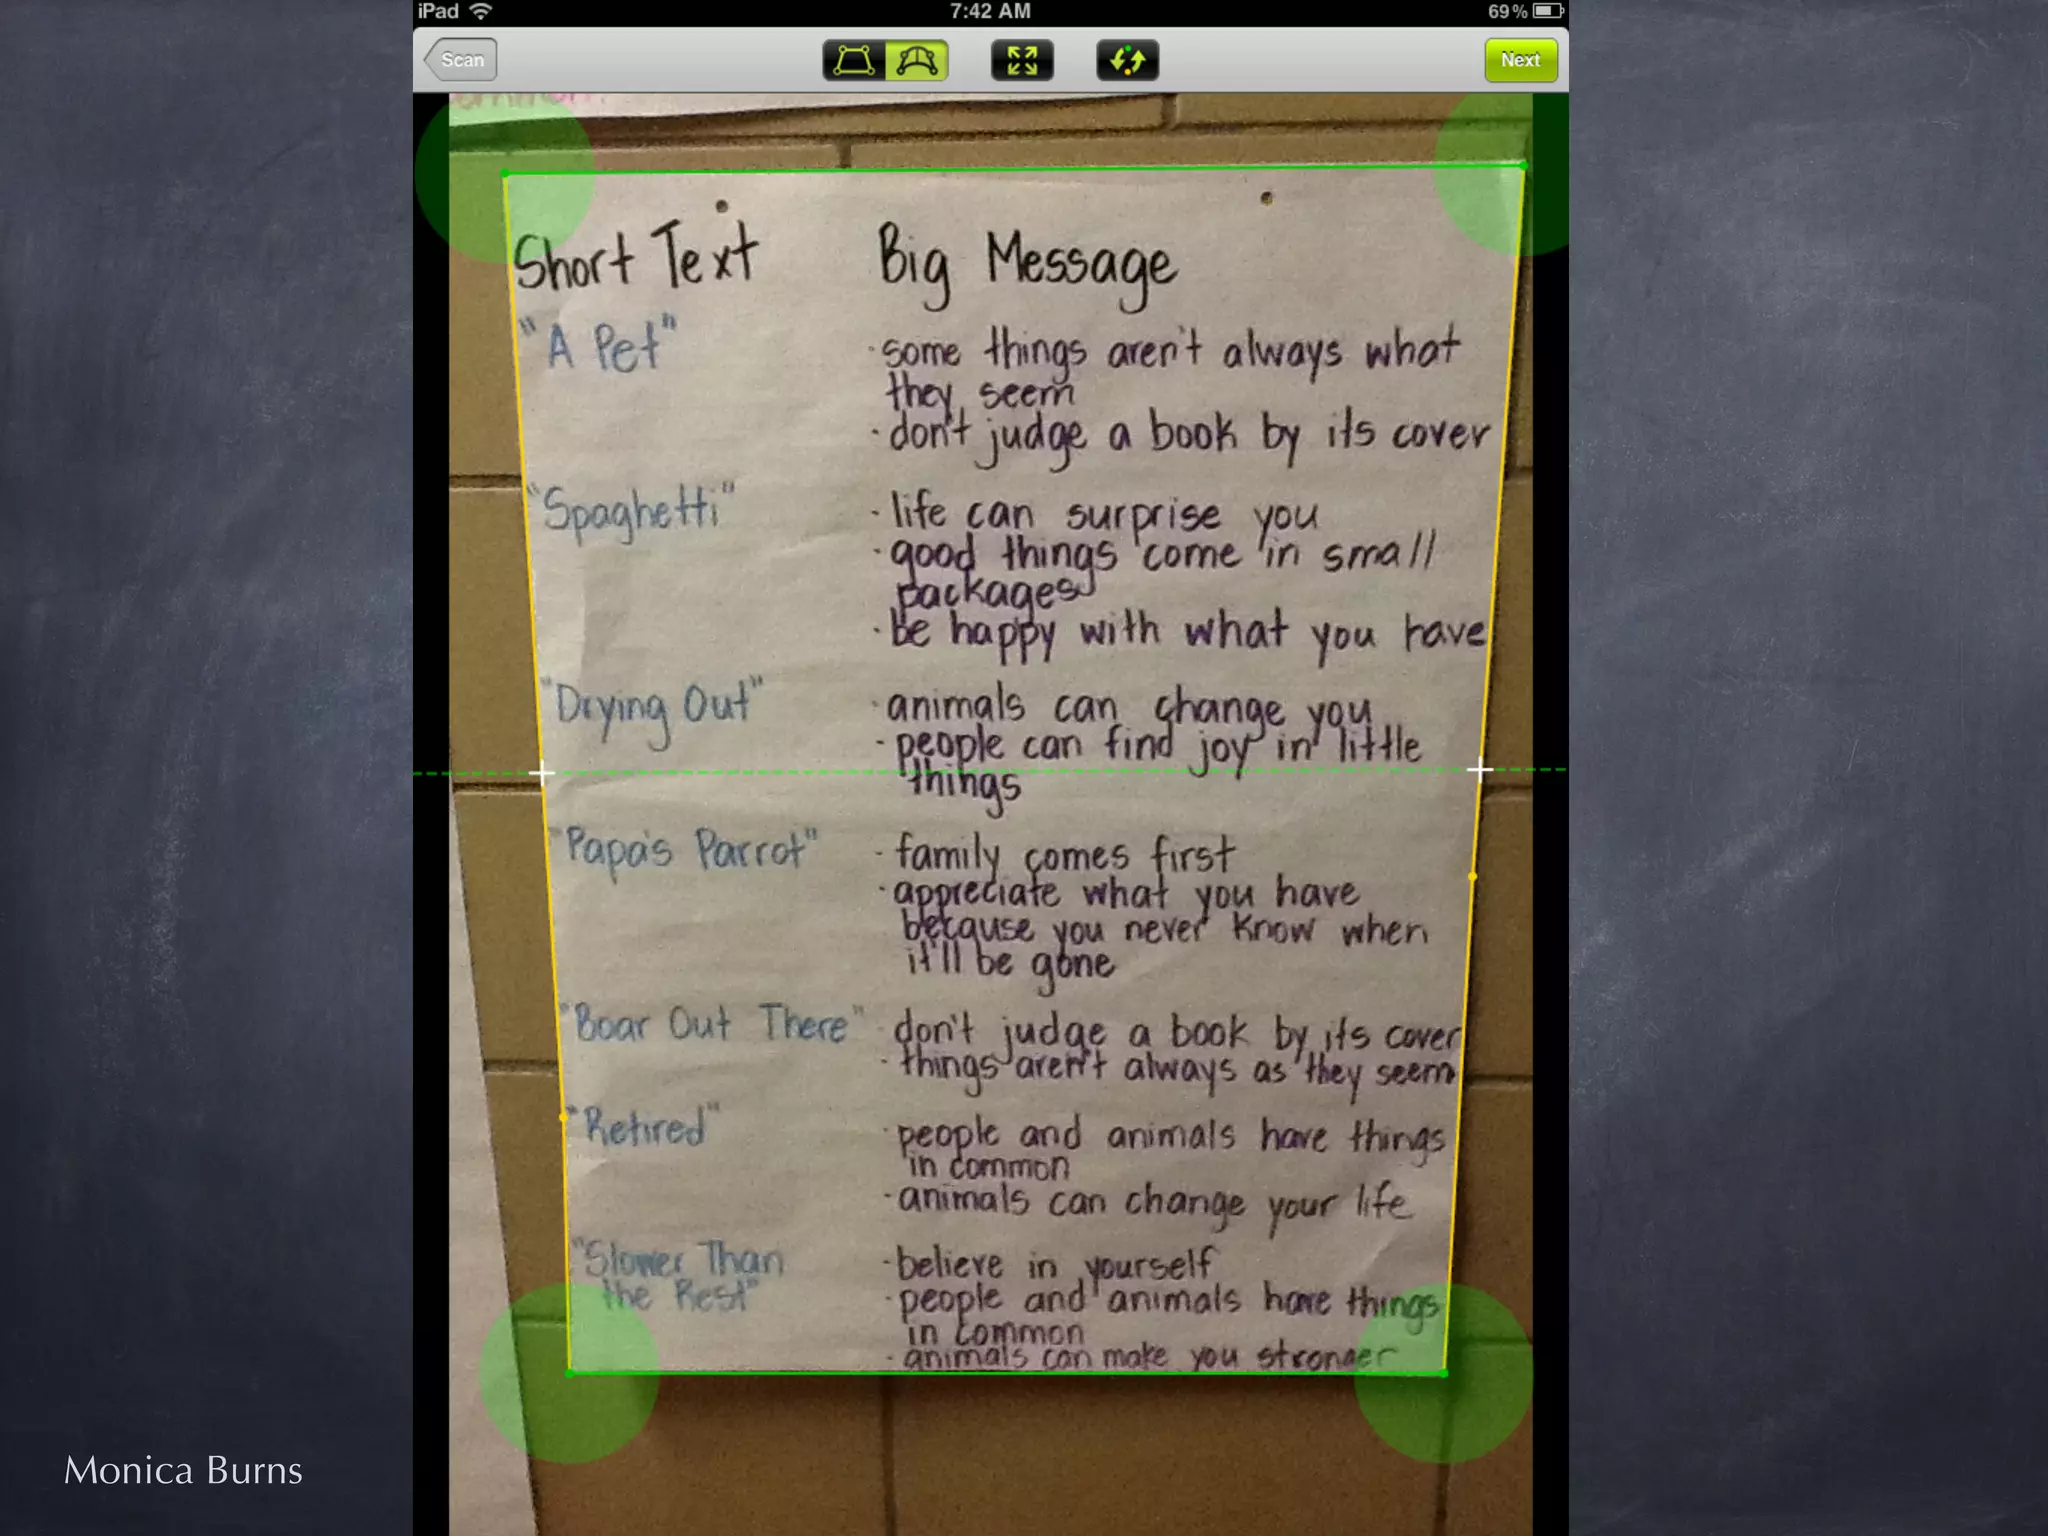 iPad 7:42 AM 69%
Scan Next
Short Text Big Message
"A Pet" · some things aren't always what
they seem
· don't judge a book by its cover
"Spaghetti" · life can surprise you
· good things come in small
packages
· be happy with what you have
"Drying Out" · animals can change you
· people can find joy in little
things
"Papa's Parrot" · family comes first
· appreciate what you have
because you never know when
it'll be gone
"Boar Out There" · don't judge a book by its cover
· things aren't always as they seem
"Retired" · people and animals have things
in common
· animals can change your life
"Slower Than · believe in yourself
the Rest" · people and animals have things
in common
· animals can make you stronger
Monica Burns